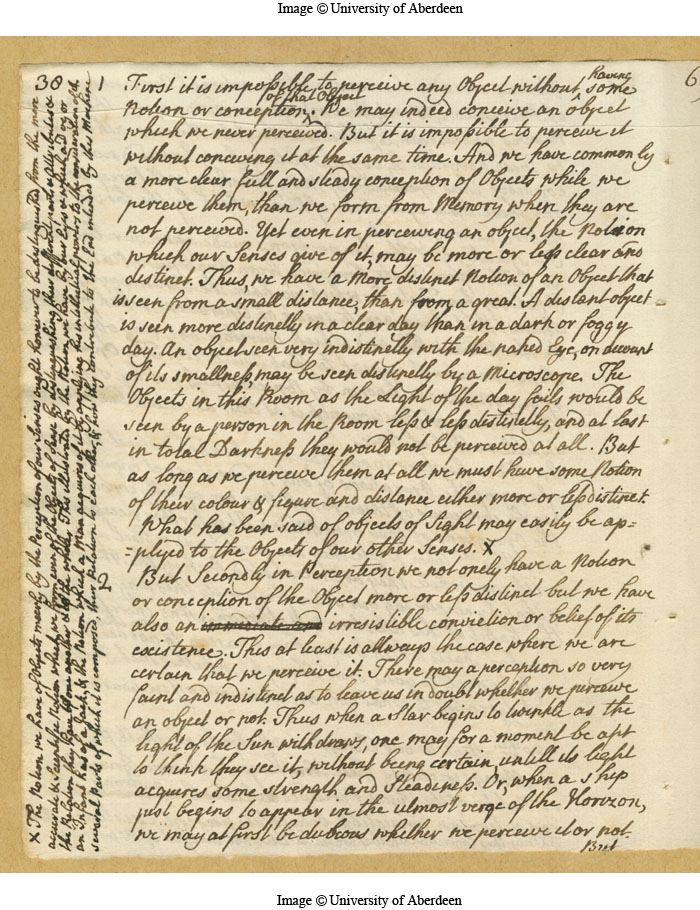 Image © University of Aberdeen
38
1
6
having
First it is impossible to perceive any Object without some
of that Object
Notion or conception. We may indeed conceive an object
which we never perceived. But it is impossible to perceive it
without conceiving it at the same time. And we have commonly
a more clear full and steady conception of Objects while we
perceive them, than we form from Memory when they are
not perceived. Yet even in perceiving an object, the Notion
which our Senses give of it, may be more or less clear and
distinct. Thus, we have a more distinct Notion of an Object that
is seen from a small distance, than from a great. A distant object
is seen more distinctly in a clear day than in a dark or foggy
day. An object seen very indistinctly with the naked Eye, on account
of its smallness, may be seen distinctly by a Microscope. The
Objects in this Room as the Light of the day fails would be
seen by a person in the Room less & less distinctly, and at last
in total Darkness they would not be perceived at all. But
as long as we perceive them at all we must have some Notion
of their colour & figure and distance either more or less distinct.
What has been said of objects of Sight may easily be ap=
=plyed to the Objects of our other Senses. X
2
But Secondly in Perception we not onely have a Notion
or conception of the Object more or less distinct but we have
also an immediate and irresistible conviction or belief of its
existence. This at least is allways the case where we are
certain that we perceive it. There may a perception so very
faint and indistinct as to leave us in doubt whether we perceive
an object or not. Thus when a Star begins to twinkle as the
light of the Sun withdraws, one may for a moment be apt
to think they see it, without being certain, untill its light
acquires some strength and Steadiness. Or, when a ship
just begins to appear in the utmost verge of the Horizon,
we may at first be dubious whether we perceive it or not.
But
X The Notion we have of Objects meerly by the Perception of our Senses ought however to be distinguished from the more
accurate & Scientifick Notion which we form some of the Objects of Sense by distinguishing their different parts or attributes &
the Relations they have to one another and to the whole. This
an Infant has of a Jack, & the Notion which a Man acquires of it by applying his intellectual powers to the consideration of the
several Parts of which it is composed, their Relation to each other, & how they contribute to the End intended by this Machine
Image © University of Aberdeen